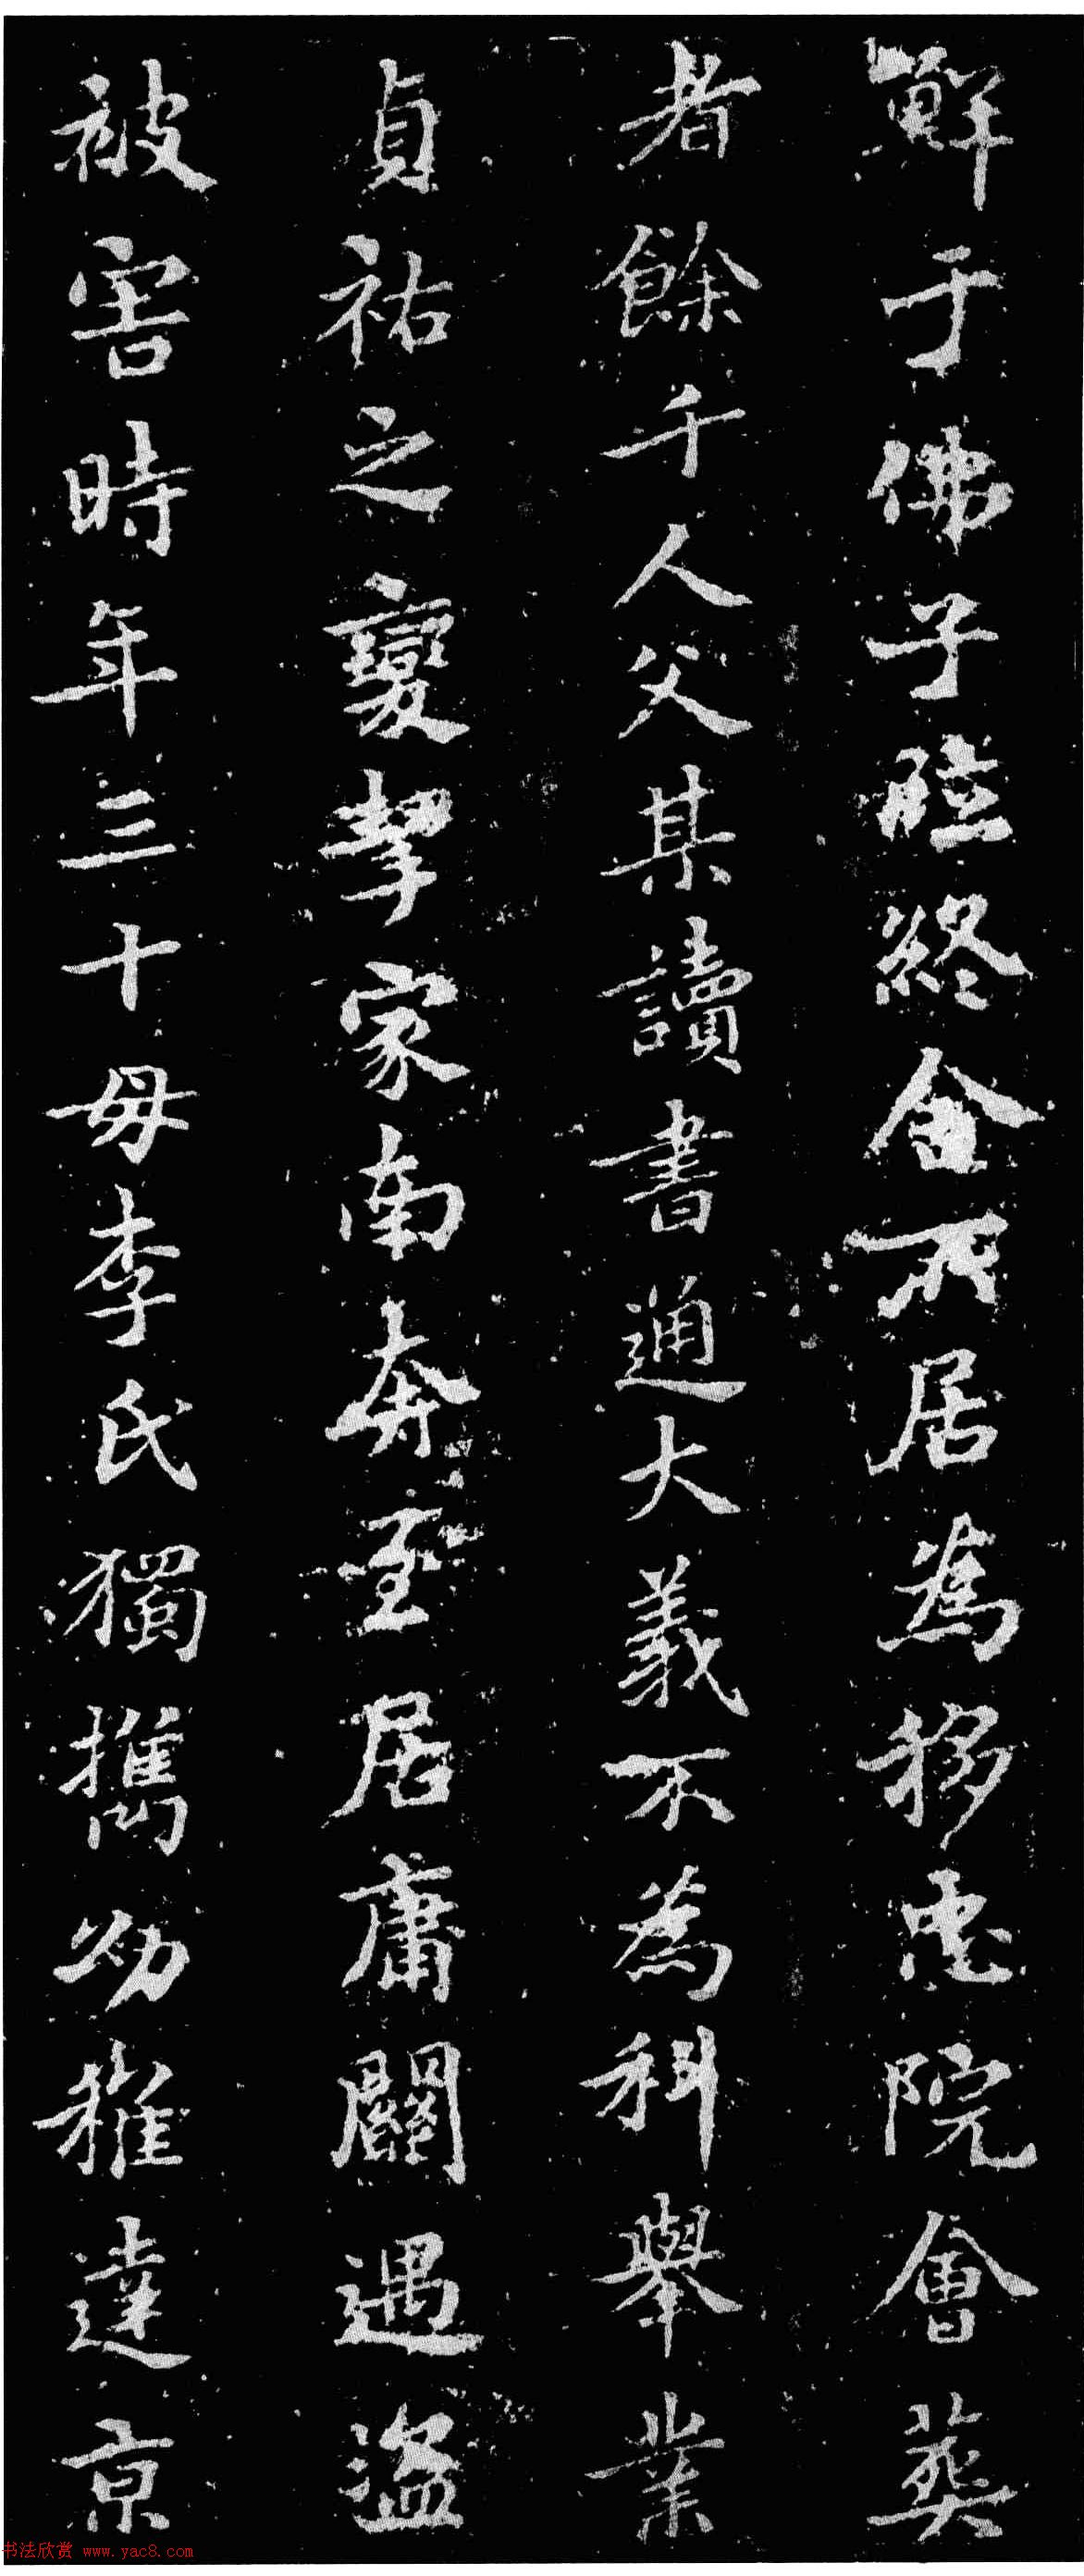 鮮于佛子臨終命所居為移忠院會葬
者餘千人父某讀書通大義不為科舉業
貞祐之變挈家南奔至居庸關遇盜
被害時年三十母李氏獨攜幼稚達京
书法欣赏 www.yac8.com